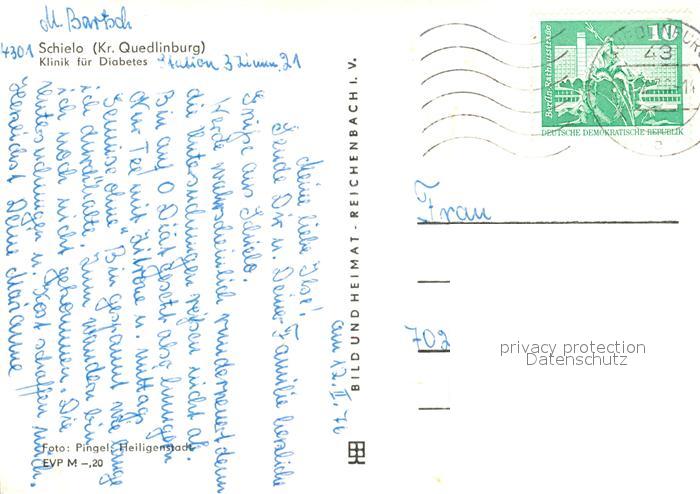 M. Bartsch
4301 Schielo (Kr. Quedlinburg)
Klinik für Diabetes Station 3 Zimm. 21
am 12. II. 76
Meine liebe Ilse!
Sende Dir u. Deiner Familie herzliche
Grüße aus Schielo.
Werde wahrscheinlich runderneuert denn
die Untersuchungen reißen nicht ab.
Bin auf 0 Diät gesetzt also hungern
Nur Tee mit Zitrone u. mittag
Gemüse ohne. Bin gespannt wie lange
ich durchhalte. Zum wandern bin
ich noch nicht gekommen. Die
Untersuchungen u. Kost schaffen mich.
Herzlichst Deine Marianne
Foto: Pingel, Heiligenstadt
EVP M –,20
BILD UND HEIMAT - REICHENBACH I. V.
10
Berlin, Rathausstraße
DEUTSCHE DEMOKRATISCHE REPUBLIK
43
Frau
702
privacy protection
Datenschutz